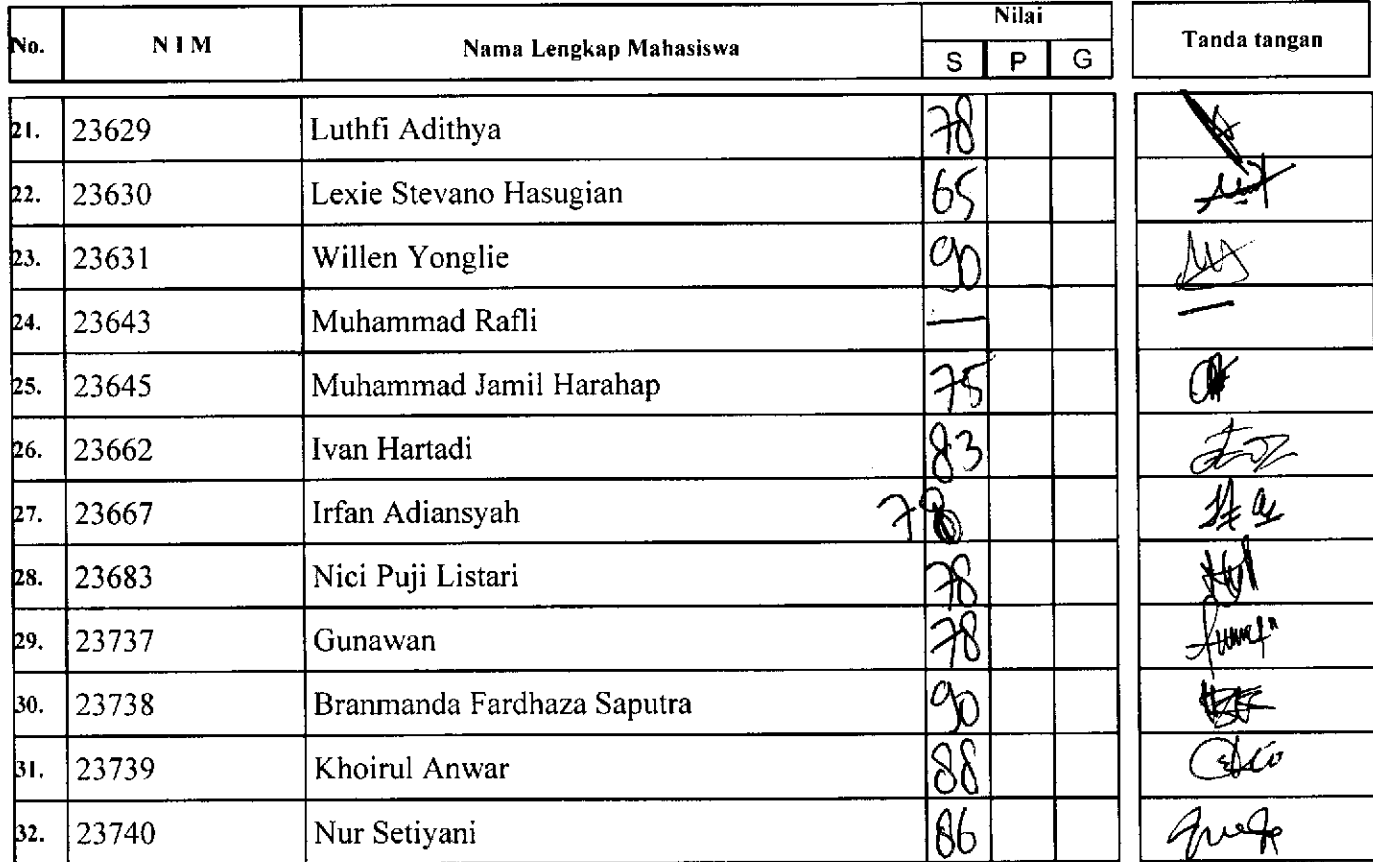 No. N I M Nama Lengkap Mahasiswa Nilai Tanda tangan
S P G
21. 23629 Luthfi Adithya 78
22. 23630 Lexie Stevano Hasugian 65
23. 23631 Willen Yonglie 90
24. 23643 Muhammad Rafli — —
25. 23645 Muhammad Jamil Harahap 75
26. 23662 Ivan Hartadi 83
27. 23667 Irfan Adiansyah 78
28. 23683 Nici Puji Listari 78
29. 23737 Gunawan 78
30. 23738 Branmanda Fardhaza Saputra 90
31. 23739 Khoirul Anwar 88
32. 23740 Nur Setiyani 86